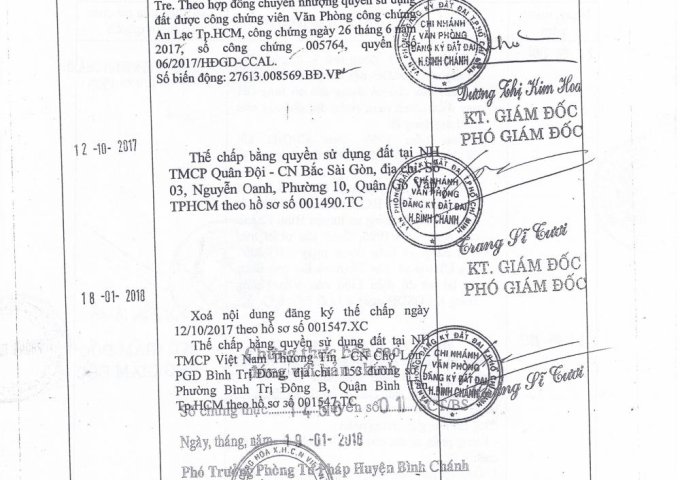 Tre. Theo hợp đồng chuyển nhượng quyền sử dụng
đất được công chứng viên Văn Phòng công chứng
An Lạc Tp.HCM, công chứng ngày 26 tháng 6 năm
2017, số công chứng 005764, quyển số
06/2017/HĐGD-CCAL.
Số biến động: 27613.008569.BĐ.VP
CHI NHÁNH
VĂN PHÒNG
ĐĂNG KÝ ĐẤT ĐAI
H.BÌNH CHÁNH
Dương Thị Kim Hoa
KT. GIÁM ĐỐC
PHÓ GIÁM ĐỐC
12-10-2017
Thế chấp bằng quyền sử dụng đất tại NH
TMCP Quân Đội - CN Bắc Sài Gòn, địa chỉ: Số
03, Nguyễn Oanh, Phường 10, Quận Gò Vấp
TPHCM theo hồ sơ số 001490.TC
CHI NHÁNH
VĂN PHÒNG
ĐĂNG KÝ ĐẤT ĐAI
H.BÌNH CHÁNH
Trang Sĩ Tươi
KT. GIÁM ĐỐC
PHÓ GIÁM ĐỐC
18-01-2018
Xoá nội dung đăng ký thế chấp ngày
12/10/2017 theo hồ sơ số 001547.XC
Thế chấp bằng quyền sử dụng đất tại NH
TMCP Việt Nam Thương Tín - CN Chợ Lớn -
PGD Bình Trị Đông, địa chỉ: 153 đường số 7,
Phường Bình Trị Đông B, Quận Bình Tân
Tp.HCM theo hồ sơ số 001547.TC
CHI NHÁNH
VĂN PHÒNG
ĐĂNG KÝ ĐẤT ĐAI
H.BÌNH CHÁNH
Trang Sĩ Tươi
Chứng thực bản sao
Số chứng thực
quyển số 01
Ngày, tháng, năm 19-01-2018
Phó Trưởng Phòng Tư Pháp Huyện Bình Chánh